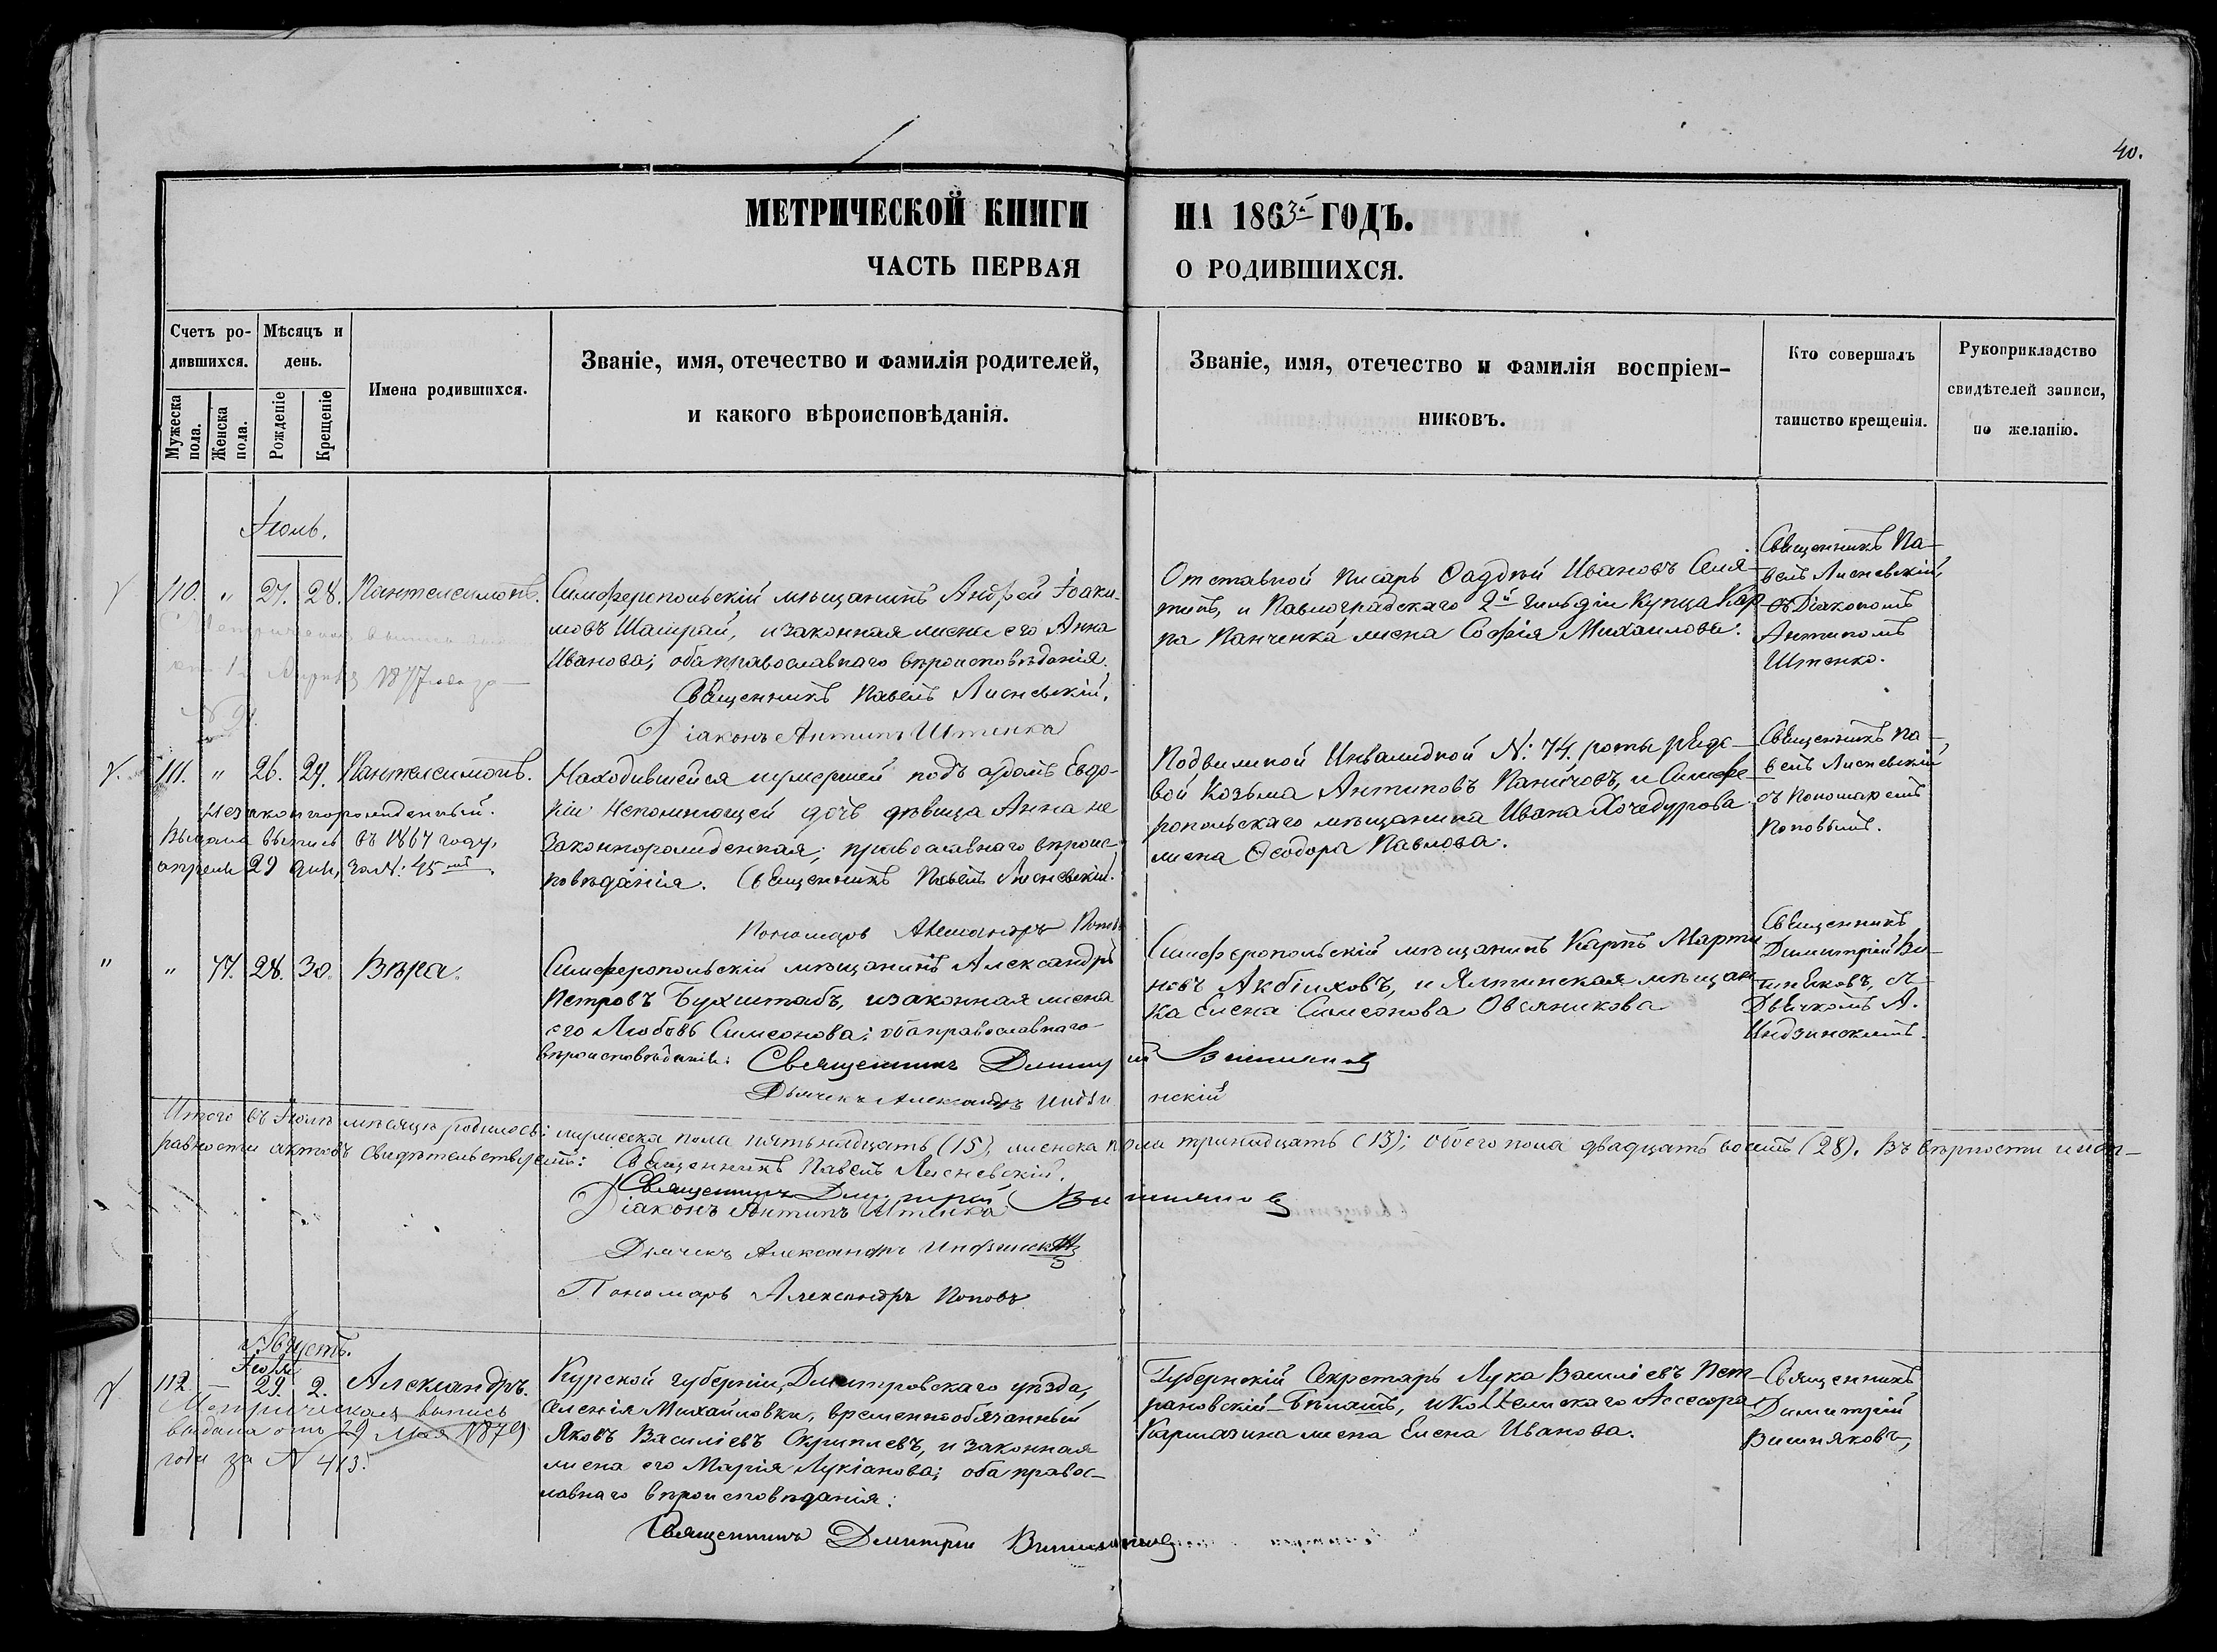 40.
МЕТРИЧЕСКОЙ КНИГИ НА 1863й ГОДЪ.
ЧАСТЬ ПЕРВАЯ О РОДИВШИХСЯ.
Счетъ ро-
дившихся.
Мужеска
пола.
Женска
пола.
Мѣсяцъ и
день.
Рожденіе
Крещеніе
Имена родившихся.
Званіе, имя, отечество и фамилія родителей,
и какого вѣроисповѣданія.
Званіе, имя, отечество и фамилія воспріем-
никовъ.
Кто совершалъ
таинство крещенія.
Рукоприкладство
свидѣтелей записи,
по желанію.
Іюль.
110. " 27. 28. Пантелеимонъ.
Симферопольскій мѣщанинъ Андрей Іоаки-
мовъ Шамрай, и законная жена его Анна
Иванова; оба православнаго вѣроисповѣданія.
Священникъ Павелъ Лисневскій.
Діаконъ Антипъ Штенко
Отставной писарь Фаддѣй Ивановъ
и Павлоградскаго 2й гильдіи купца Кар-
па Панченка жена Софія Михаилова.
Священникъ Па-
велъ Лисневскій,
съ Діакономъ
Антипомъ
Штенко.
1877 года за
111. " 26. 29. Пантелеимонъ.
незаконнорожденный.
Выдана выпись въ 1867 году,
апрѣля 29 дня, за №: 45мъ.
Находившейся умершей подъ судомъ Евдо-
кіи Непомнющей дочь дѣвица Анна не
законнорожденная; православнаго вѣроис-
повѣданія. Священникъ Павелъ Лисневскій.
Пономарь Александръ Поповъ
Подвижной Инвалидной №: 74. роты рядо-
вой Козьма Антиповъ Паничовъ, и Симфе-
ропольскаго мѣщанина Ивана Хочедурова
жена Ѳеодора Павлова.
Священникъ Па-
велъ Лисневскій
съ Пономаремъ
Поповымъ.
" " 77. 28. 30. Вѣра.
Симферопольскій мѣщанинъ Александръ
Петровъ Бухштабъ, и законная жена
его Любовь Симеонова; оба православнаго
вѣроисповѣданія. Священникъ Димитрій Вишняковъ
Дьячекъ Александръ Индзинскій
Симферопольскій мѣщанинъ Карпъ Марти-
новъ Акбіиховъ, и Ялтинская мѣщан-
ка Елена Симеонова Овсяникова
Священникъ
Димитрій Ви-
шняковъ, съ
Дьячкомъ А.
Индзинскимъ.
Итого въ Іюлѣ мѣсяцѣ родилось: мужеска пола пятьнадцать (15), женска пола тринадцать (13); обоего пола двадцать восемь (28). Въ вѣрности и исп-
равности актовъ свидѣтельствуемъ: Священникъ Павелъ Лисневскій.
Священникъ Димитрій Вишняковъ
Діаконъ Антипъ Штенко
Дьячекъ Александръ Индзинскій
Пономарь Александръ Поповъ
Августъ.
Іюля
112 – 29. 2. Александръ.
Метрическая выпись
выдана отъ 29 Мая 1879
года за № 413.
Курской губерніи, Дмитровскаго уѣзда,
селенія Михайловки, временнообязанный
Яковъ Василіевъ Скрипиевъ, и законная
жена его Марія Лукіанова; оба правос-
лавнаго вѣроисповѣданія.
Священникъ Димитрій Вишняковъ
Губернскій Секретарь Лука Василіевъ Пет-
рановскій-Бѣлашъ, и Коллежскаго Ассесора
Кармазина жена Елена Иванова.
Священникъ
Димитрій
Вишняковъ,